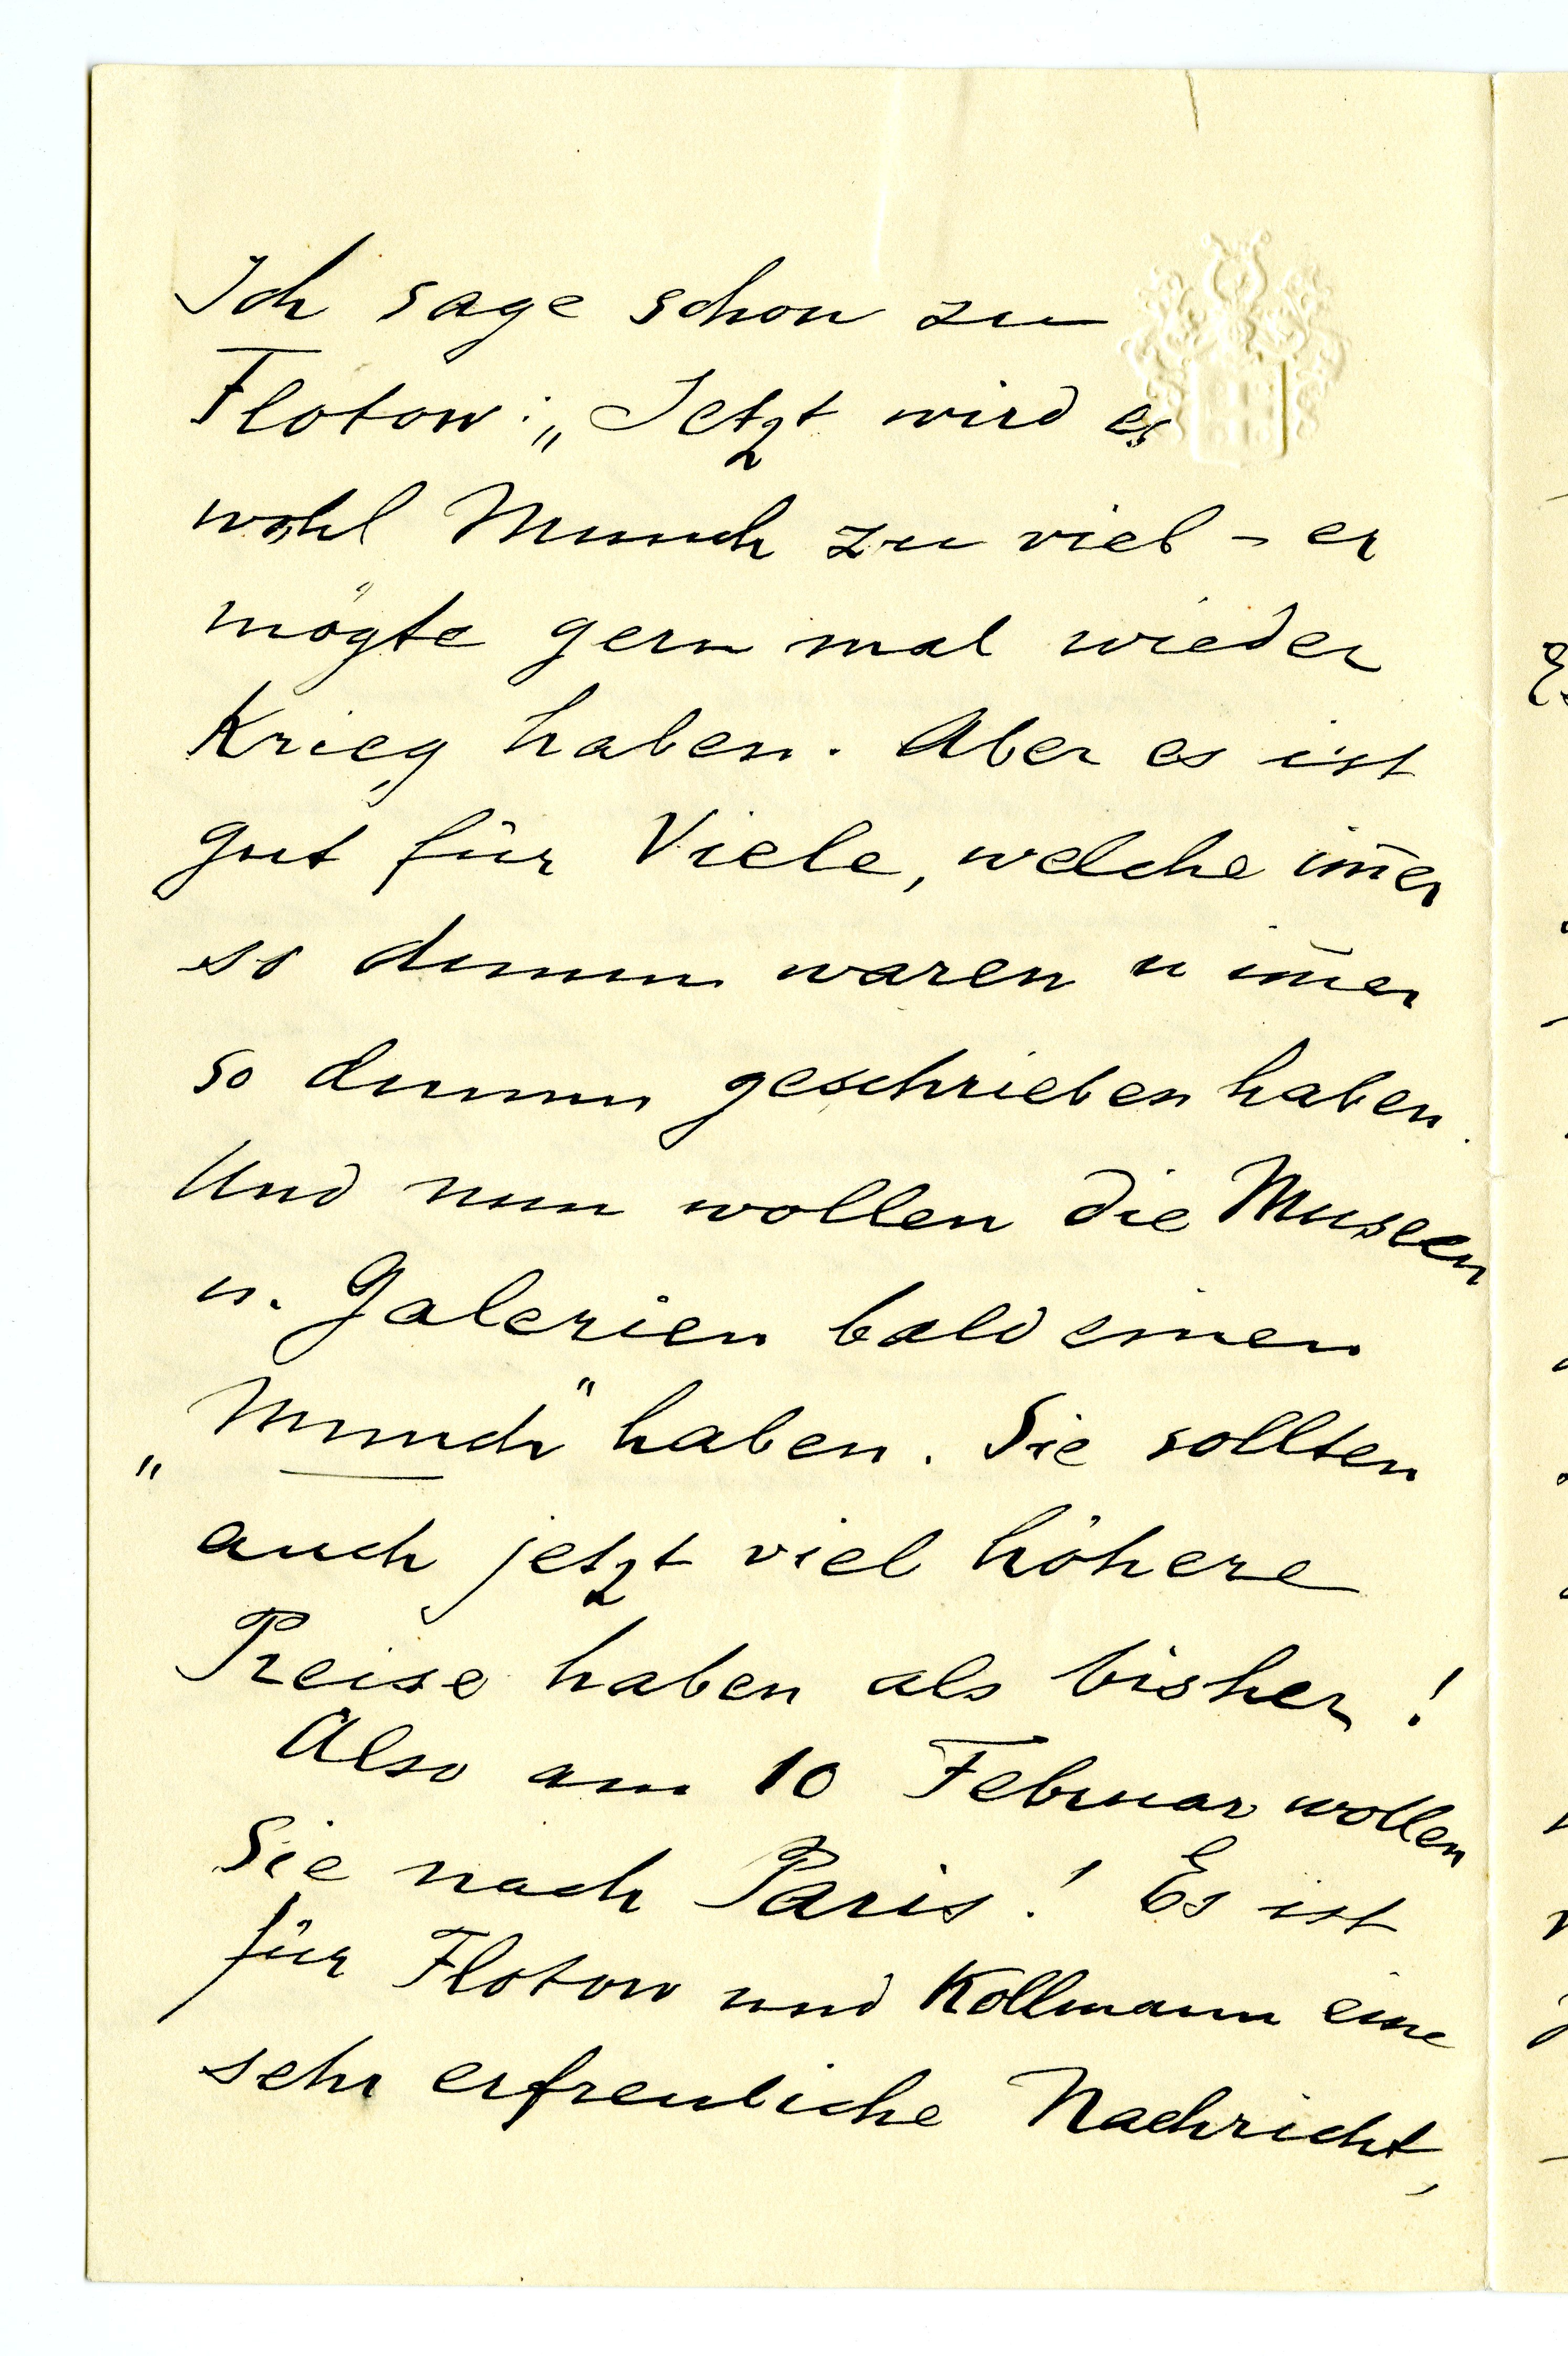 Ich sage schon zu
Flotow: „Jetzt wird es
wohl Munch zu viel – er
mögte gern mal wieder
Krieg haben. Aber es ist
gut für Viele, welche im̅er
so dumm waren u im̅er
so dumm geschrieben haben.
Und nun wollen die Museen
u. Galerien bald einen
„Munch" haben. Sie sollten
auch jetzt viel höhere
Preise haben als bisher!
Also am 10 Februar wollen
Sie nach Paris! Es ist
für Flotow und Kollmann eine
sehr erfreuliche Nachricht,